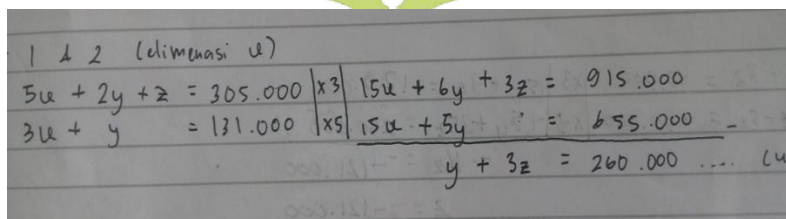 1 & 2 (elimenasi x)
5x + 2y + z = 305.000 |x3| 15x + 6y + 3z = 915.000
3x + y = 131.000 |x5| 15x + 5y = 655.000 -
y + 3z = 260.000 .... (4